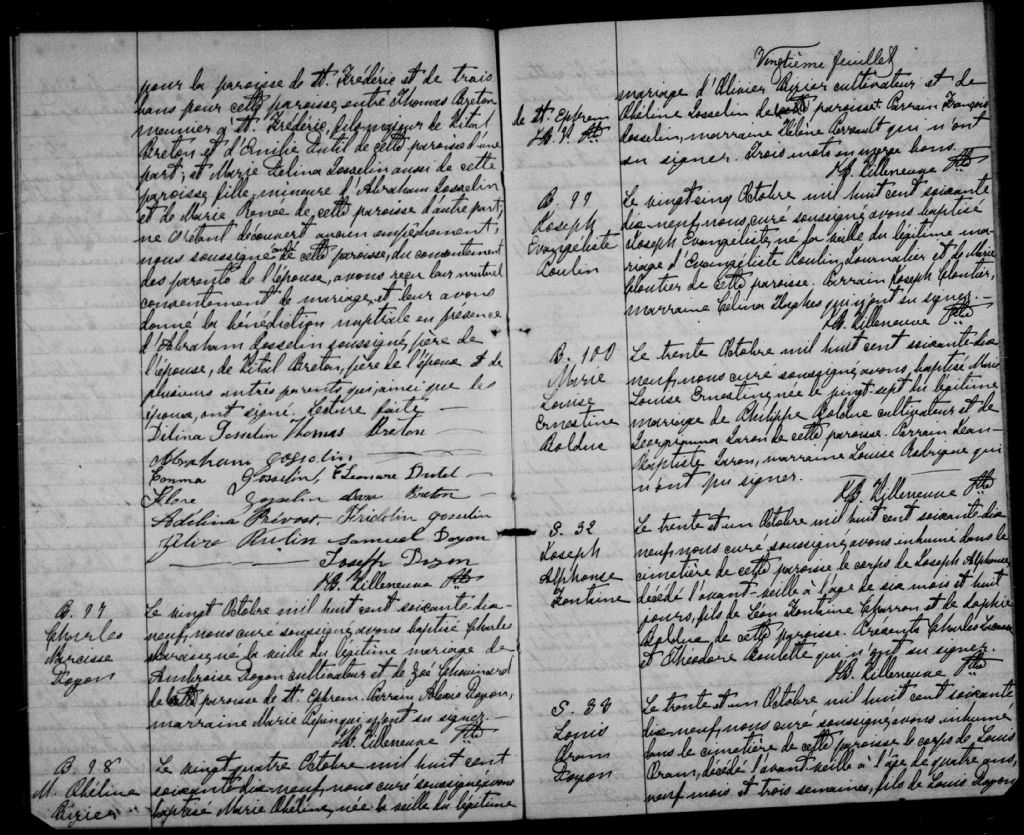 pour la paroisse de St. Frédéric et de trois
bans pour cette paroisse, entre Thomas Breton
meunier à St. Frédéric, fils majeur de Vital
Breton et d'Emilie Dutil de cette paroisse d'une
part; et Marie Zelina Gosselin aussi de cette
paroisse, fille, mineure d'Abraham Gosselin
et de Marie de cette paroisse d'autre part;
ne s'étant découvert aucun empêchement,
nous soussigné curé de cette paroisse, du consentement
des parents de l'épouse, avons reçu leur mutuel
consentement de mariage, et leur avons
donné la bénédiction nuptiale en présence
d'Abraham Gosselin soussigné, père de
l'épouse, de Vital Breton, père de l'époux et de
plusieurs autres parents, qui, ainsi que les
époux, ont signé. Lecture faite —
Délina Gosselin Thomas Breton —
Abraham gosselin.
Emma Gosselin, Eleonore Dutil —
Flore Gosselin Breton —
Adélina Prévost. Fridolin gosselin
Samuel Doyon
Joseph Doyon
JB. Villeneuve Ptre
B. 97
Charles
Narcisse
Doyon
Le vingt Octobre mil huit cent soixante-dix-
neuf, nous curé soussigné, avons baptisé Charles
Narcisse, né la veille du légitime mariage de
Ambroise Doyon cultivateur et de Zoé Chouinard
de paroisse de St. Ephrem. Parrain Doyon,
marraine Marie Pepin qui n'ont su signer —
JB. Villeneuve Ptre
B. 98
M. Obéline
Bizier
Le vingt quatre Octobre mil huit cent
soixante-dix-neuf, nous curé soussigné, avons
baptisé Marie Obéline, née la veille du légitime
Vingtième feuillet
mariage d'Olivier Bizier cultivateur et de
Obéline Gosselin de paroisse. Parrain François
de St. Ephrem
JB. V. Ptre
Gosselin, marraine Hélène Perrault qui n'ont
su signer. Trois mots en marge bons.
JB. Villeneuve Ptre
B. 99
Joseph
Evangéliste
Poulin
Le vingt cinq Octobre mil huit cent soixante
dix-neuf, nous, curé soussigné, avons baptisé
Joseph Evangéliste, né la veille du légitime ma-
riage d'Evangéliste Poulin, Journalier et de Marie
Cloutier de cette paroisse. Parrain Joseph Cloutier,
marraine Célina Hughes qui n'ont su signer. —
JB. Villeneuve Ptre
B. 100
Marie
Louise
Ernestine
Bolduc
Le trente Octobre mil huit cent soixante-dix
neuf, nous curé soussigné, avons baptisé Marie
Louise Ernestine, née le vingt-sept du légitime
mariage de Philippe Bolduc cultivateur et de
Georgianna Caron de cette paroisse. Parrain Jean-
Baptiste Caron, marraine Louise Rodrigue qui
n'ont pu signer.
JB Villeneuve Ptre
S. 32
Joseph
Alphonse
Fontaine
Le trente et un Octobre mil huit cent soixante dix
neuf, nous curé soussigné, avons inhumé dans le
cimetière de cette paroisse le corps de Joseph Alphonse,
décédé l'avant-veille à l'âge de six mois et huit
jours, fils de Léon Fontaine Charron et de Sophie
Bolduc, de cette paroisse. Présents Charles
et Théodore Boulette qui n'ont su signer.
JB. Villeneuve Ptre
S. 33
Louis
Oram
Doyon
Le trente et un Octobre mil huit cent soixante
dix-neuf, nous curé soussigné, avons inhumé
dans le cimetière de cette paroisse le corps de Louis
Oram, décédé l'avant-veille à l'âge de quatre ans,
neuf mois et trois semaines, fils de Louis Doyon